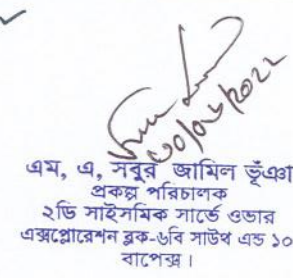 ৩০/০৬/২০২২
এম, এ, সবুর জামিল ভূঁঞা
প্রকল্প পরিচালক
২ডি সাইসমিক সার্ভে ওভার
এক্সপ্লোরেশন ব্লক-৬বি সাউথ এন্ড ১০
বাপেক্স।